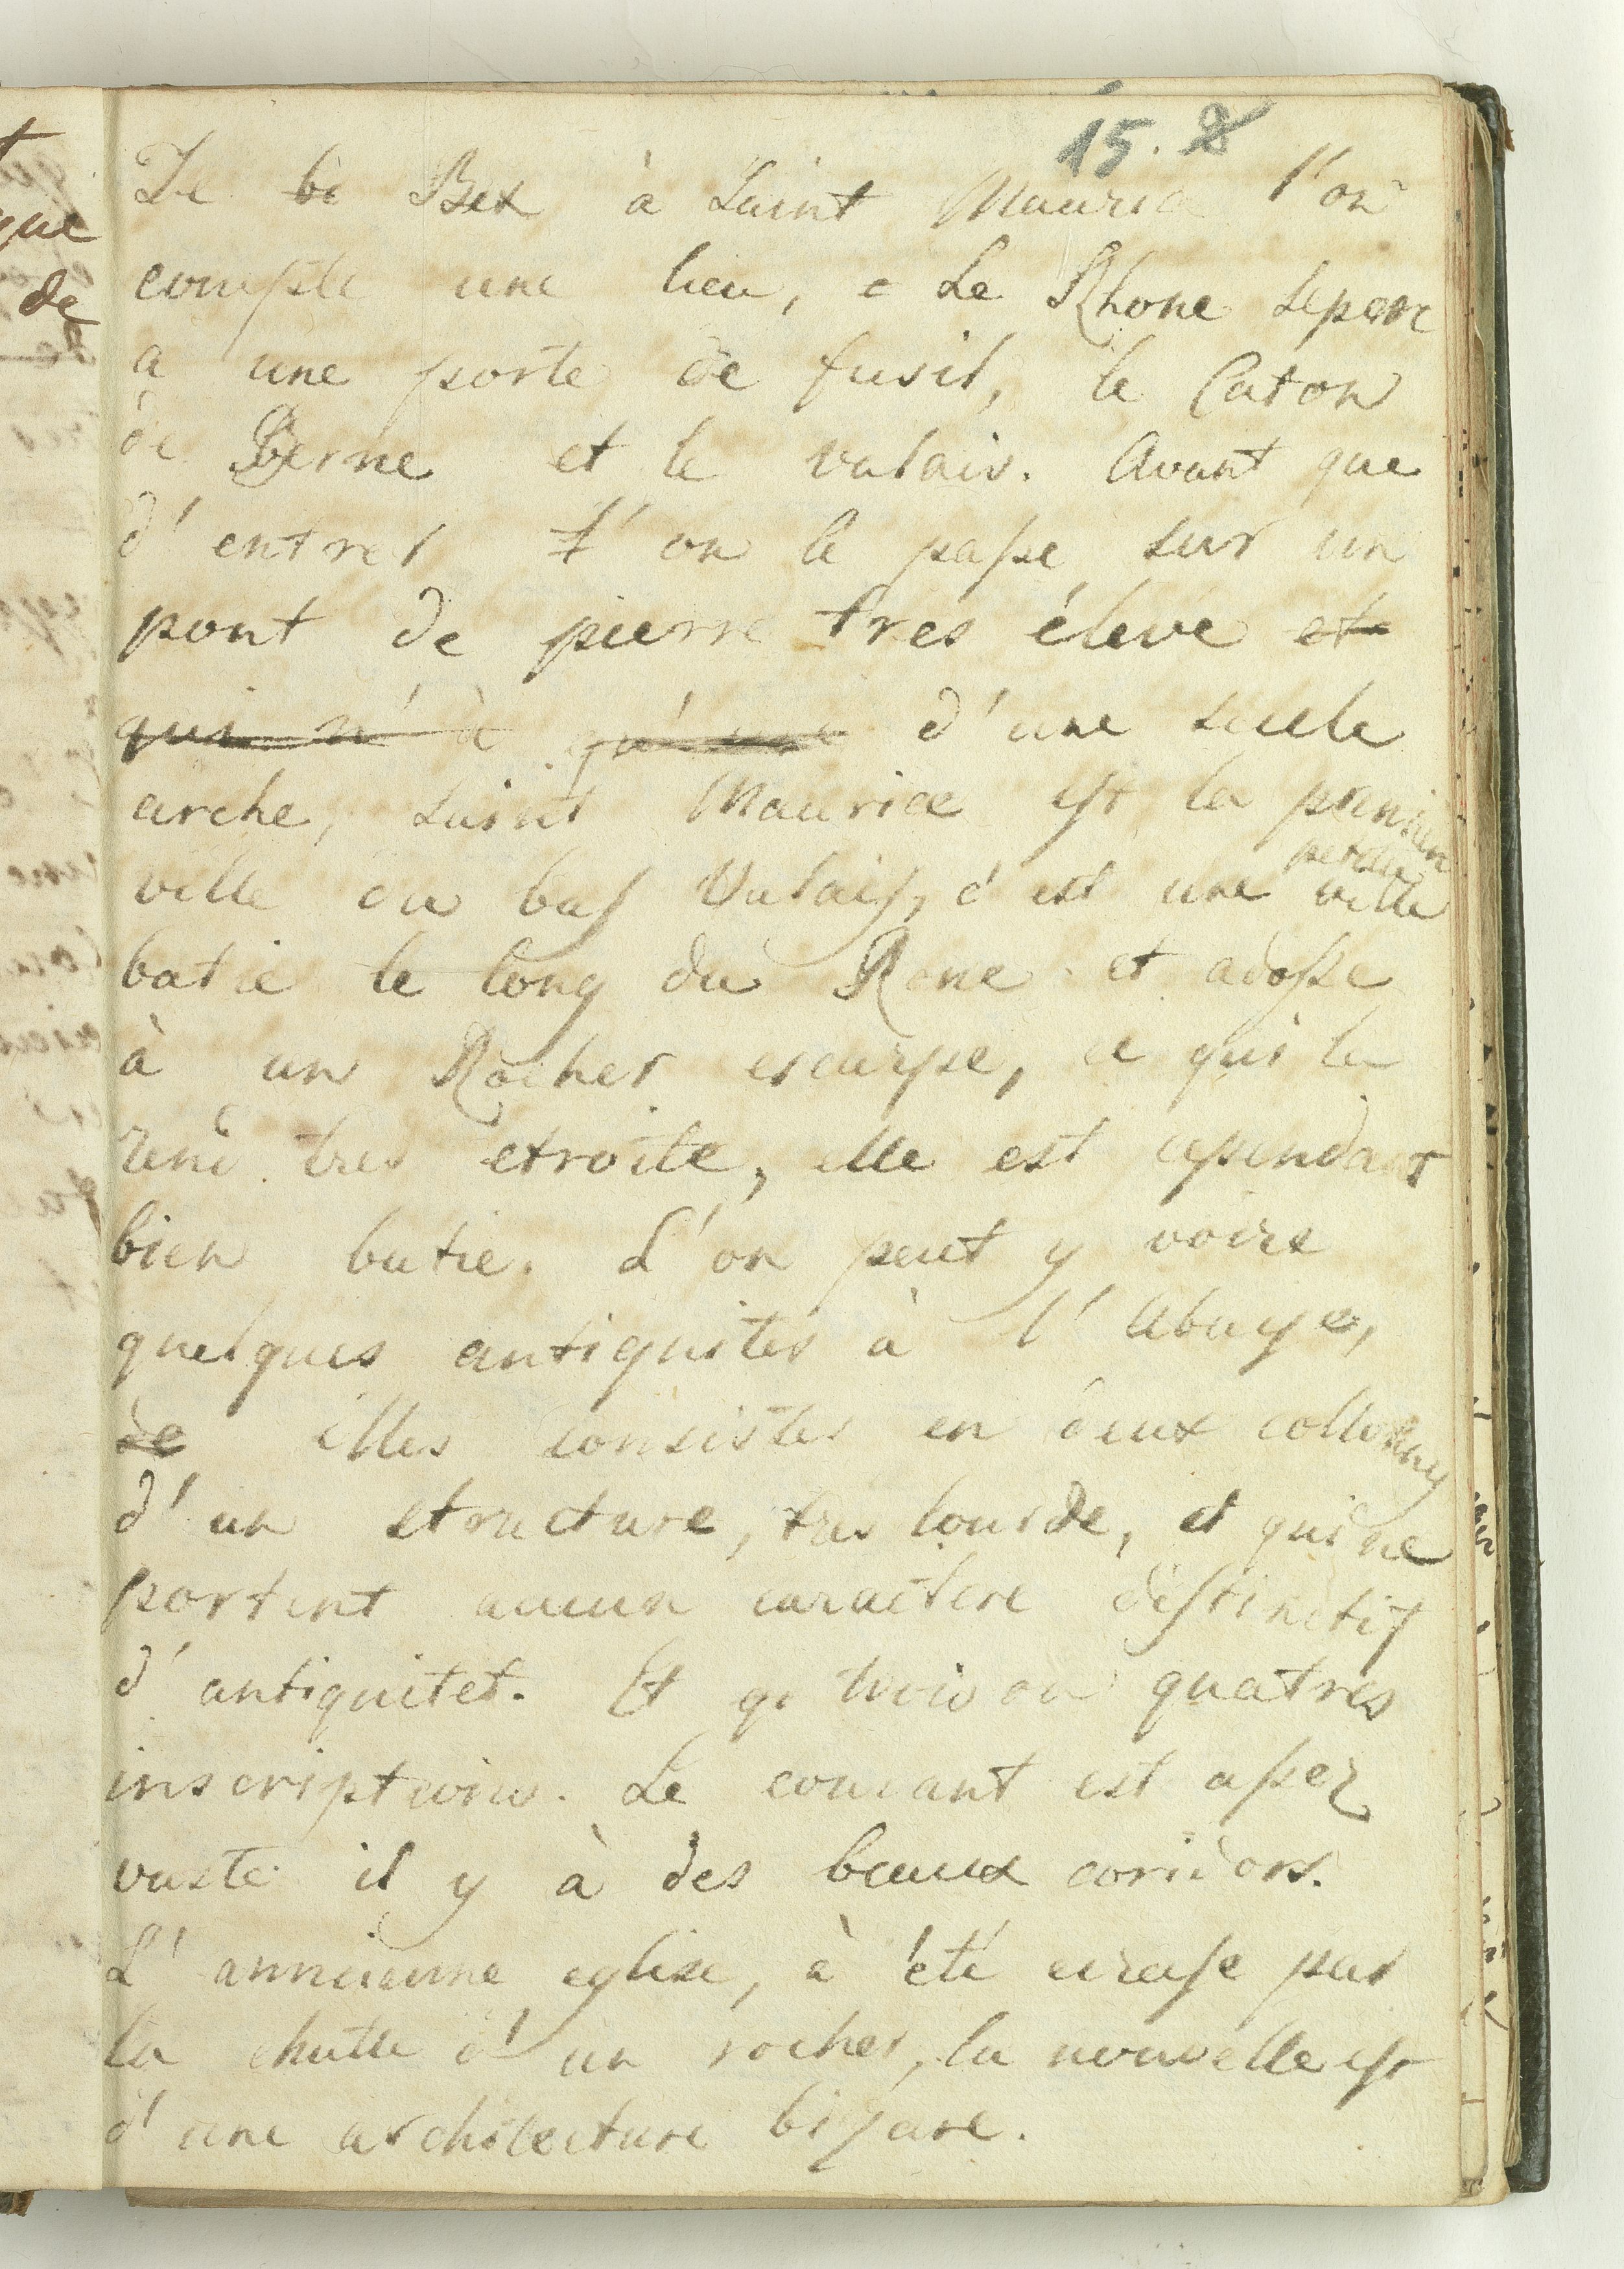 15. 8
De be Bex à Saint Maurice l'on
compte une lieu, e Le Rhone separe
a une porte de fusil, le Caton
de Berne et le valais. Avant que
d'entrer l'on le passe sur un
pont de pierre tres éleve et
qui n'à qu'une d'une seule
arche, Saint Maurice est la premier
ville du bas Valais, c'est une petite
ville
batie le long du Rone et adosse
à un Rocher escarpe, ce qui la
rend tres etroite, elle est cependant
bien batie. L'on peut y voire
quelques antiquites à l'Abaye,
de elles consistes en deux collonnes
d'un structure, tres lourde, et qui ne
portent aucun caractere distinctif
d'antiquitet. Et qo trois ou quatres
inscriptions. Le couvant est assez
vaste il y à des beaux coridors.
L'annicienne eglise, à été ecrase par
la chutte d'un rocher, la nouvelle est
d'une architecture bizare.
que
de